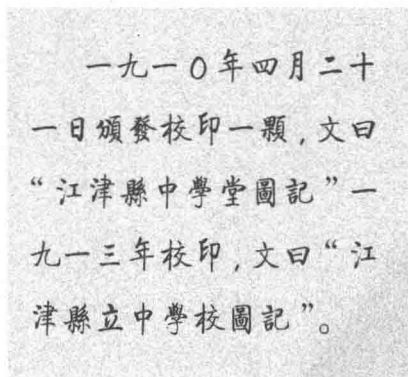 一九一〇年四月二十
一日頒發校印一顆,文曰
“江津縣中學堂圖記”一
九一三年校印,文曰“江
津縣立中學校圖記”。